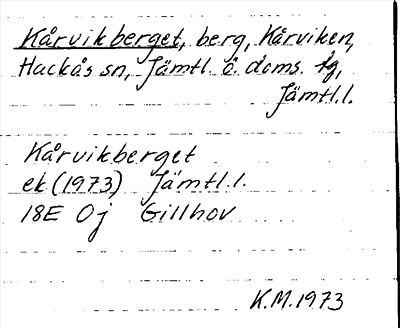 Kårvikberget, berg, Kårviken,
Hackås sn, Jämtl. ö. doms. tg,
Jämtl.l.
Kårvikberget
ek (1973) Jämtl.l.
18E 0j Gillhov
K.M. 1973